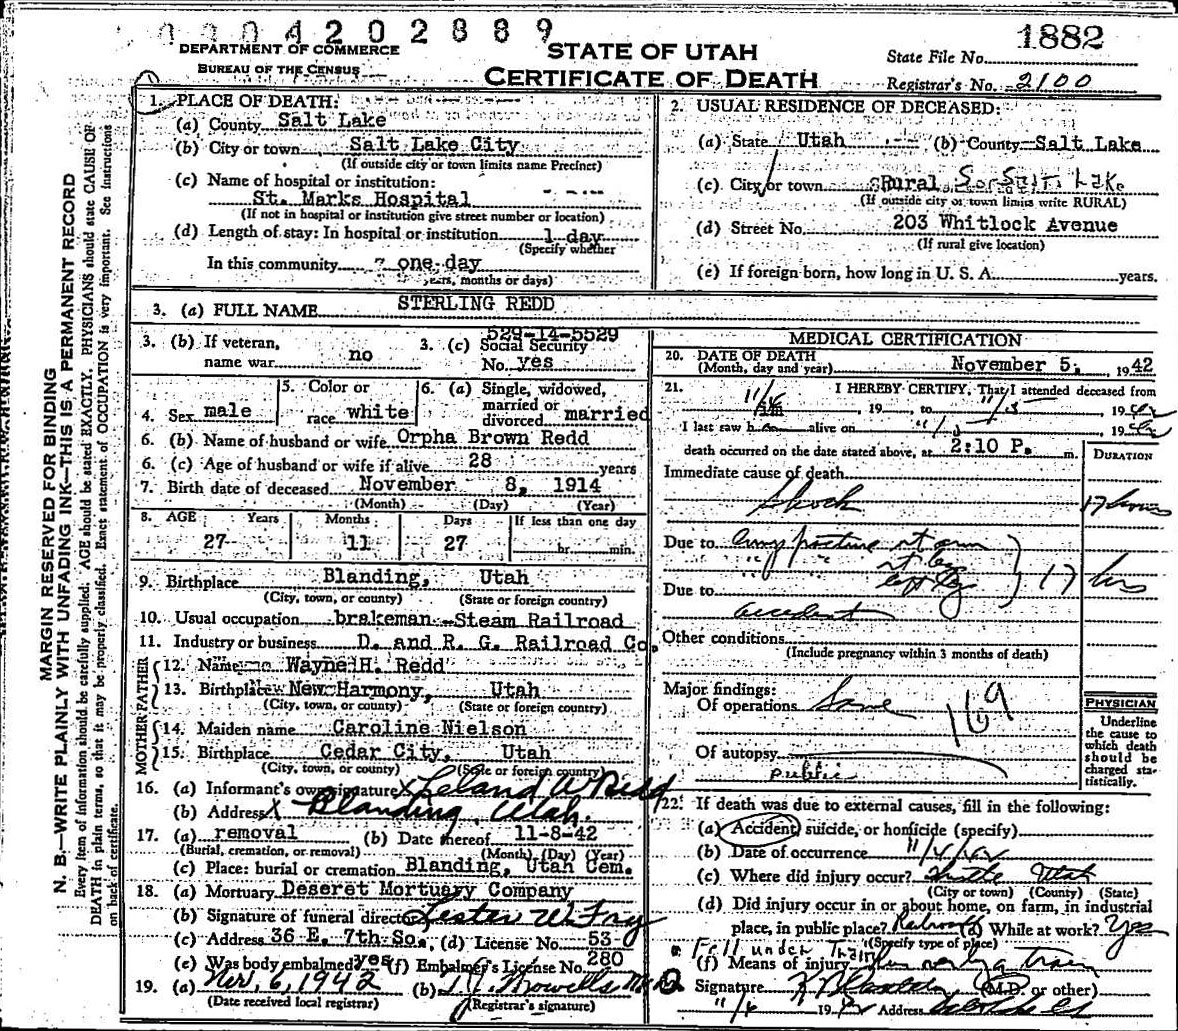 0004202889
DEPARTMENT OF COMMERCE
BUREAU OF THE CENSUS
STATE OF UTAH
CERTIFICATE OF DEATH
State File No. 1882
Registrar's No. 2100
MARGIN RESERVED FOR BINDING
N. B.—WRITE PLAINLY WITH UNFADING INK—THIS IS A PERMANENT RECORD
Every item of information should be carefully supplied. AGE should be stated EXACTLY. PHYSICIANS should state CAUSE OF
DEATH in plain terms, so that it may be properly classified. Exact statement of OCCUPATION is very important. See instructions
on back of certificate.
1. PLACE OF DEATH:
(a) County Salt Lake
(b) City or town Salt Lake City
(If outside city or town limits name Precinct)
(c) Name of hospital or institution:
St. Marks Hospital
(If not in hospital or institution give street number or location)
(d) Length of stay: In hospital or institution 1 day
(Specify whether
In this community one day
years, months or days)
2. USUAL RESIDENCE OF DECEASED:
(a) State Utah (b) County Salt Lake
(c) City or town Rural So. Salt Lake
(If outside city or town limits write RURAL)
(d) Street No. 203 Whitlock Avenue
(If rural give location)
(e) If foreign born, how long in U. S. A. years.
3. (a) FULL NAME STERLING REDD
3. (b) If veteran, name war no
3. (c) Social Security No. yes 529-14-5529
4. Sex male
5. Color or race white
6. (a) Single, widowed, married or divorced married
6. (b) Name of husband or wife Orpha Brown Redd
6. (c) Age of husband or wife if alive 28 years
7. Birth date of deceased November 8, 1914
(Month) (Day) (Year)
8. AGE Years Months Days If less than one day
27 11 27 hr. min.
9. Birthplace Blanding, Utah
(City, town, or county) (State or foreign country)
10. Usual occupation brakeman-Steam Railroad
11. Industry or business D. and R. G. Railroad Co.
FATHER
12. Name Wayne H. Redd
13. Birthplace New Harmony, Utah
(City, town, or county) (State or foreign country)
MOTHER
14. Maiden name Caroline Nielson
15. Birthplace Cedar City, Utah
(City, town, or county) (State or foreign country)
16. (a) Informant's own signature X Leland W Redd
(b) Address X Blanding, Utah.
17. (a) removal (b) Date thereof 11-8-42
(Burial, cremation, or removal) (Month) (Day) (Year)
(c) Place: burial or cremation Blanding, Utah Cem.
18. (a) Mortuary Deseret Mortuary Company
(b) Signature of funeral director Lester W Fry
(c) Address 36 E. 7th So. (d) License No. 53
(e) Was body embalmed? yes (f) Embalmer's License No. 280
19. (a) Nov. 6, 1942 (b)
(Date received local registrar) (Registrar's signature)
MEDICAL CERTIFICATION
20. DATE OF DEATH
(Month, day and year) November 5, 1942
21. I HEREBY CERTIFY, That I attended deceased from
11/4, 19, to 11/5 1942
I last saw h alive on 11/5 1942
death occurred on the date stated above, at 2:10 P. m.
DURATION
Immediate cause of death
Shock 17 hours
Due to rt arm
rt leg
Due to left leg 17 hrs
accident
Other conditions
(Include pregnancy within 3 months of death)
Major findings:
Of operations Same 169
Of autopsy
public
PHYSICIAN
Underline
the cause to
which death
should be
charged sta-
tistically.
22. If death was due to external causes, fill in the following:
(a) Accident, suicide, or homicide (specify)
(b) Date of occurrence 11/4/42
(c) Where did injury occur? Utah
(City or town) (County) (State)
(d) Did injury occur in or about home, on farm, in industrial
place, in public place? Railroad (e) While at work? Yes
(Specify type of place)
Fell under Train
(f) Means of injury run over by a train
Signature (M.D. or other)
11/6 1942 Address